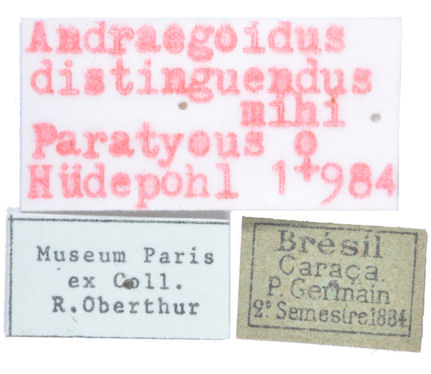 Andraegoidus
distinguendus
mihi
Paratyous ♀
Hüdepohl 1984
Museum Paris
ex Coll.
R.Oberthur
Brésil
Caraça
P. Germain
2ᵉ Semestre 1884